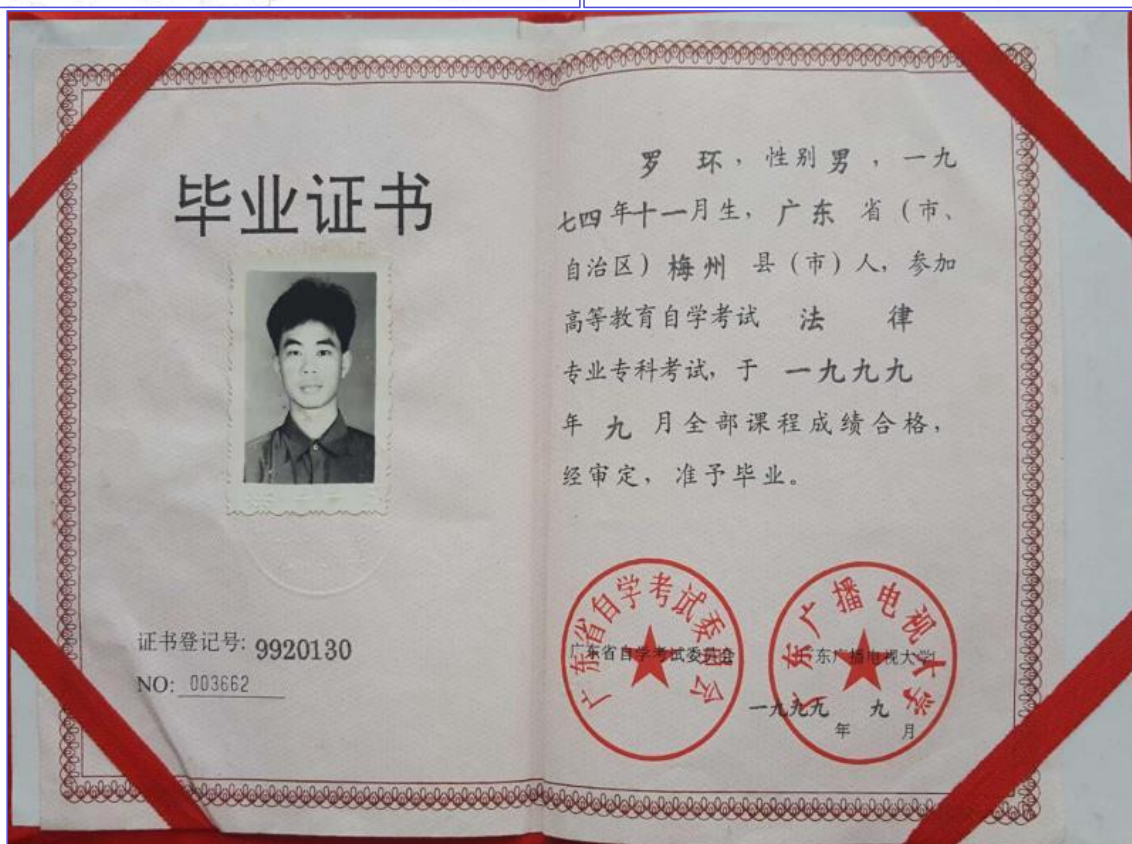 毕业证书
证书登记号: 9920130
NO: 003662
罗 环，性别 男，一九
七四年十一月生，广东 省（市、
自治区）梅州 县（市）人，参加
高等教育自学考试 法 律
专业专科考试，于 一九九九
年 九 月全部课程成绩合格，
经审定，准予毕业。
广东省自学考试委员会
广东省自学考试委员会
广东广播电视大学
广东广播电视大学
一九九九 年 九 月